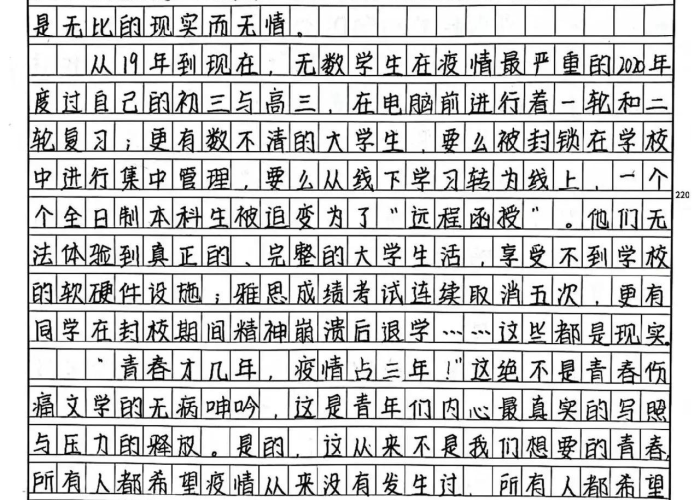 是无比的现实而无情。
从19年到现在，无数学生在疫情最严重的2020年
度过自己的初三与高三，在电脑前进行着一轮和二
轮复习；更有数不清的大学生，要么被封锁在学校
中进行集中管理，要么从线下学习转为线上，一个
个全日制本科生被迫变为了“远程函授”。他们无
220
法体验到真正的、完整的大学生活，享受不到学校
的软硬件设施；雅思成绩考试连续取消五次，更有
同学在封校期间精神崩溃后退学……这些都是现实。
“青春才几年，疫情占三年！”这绝不是青春伤
痛文学的无病呻吟，这是青年们内心最真实的写照
与压力的释放。是的，这从来不是我们想要的青春，
所有人都希望疫情从来没有发生过，所有人都希望